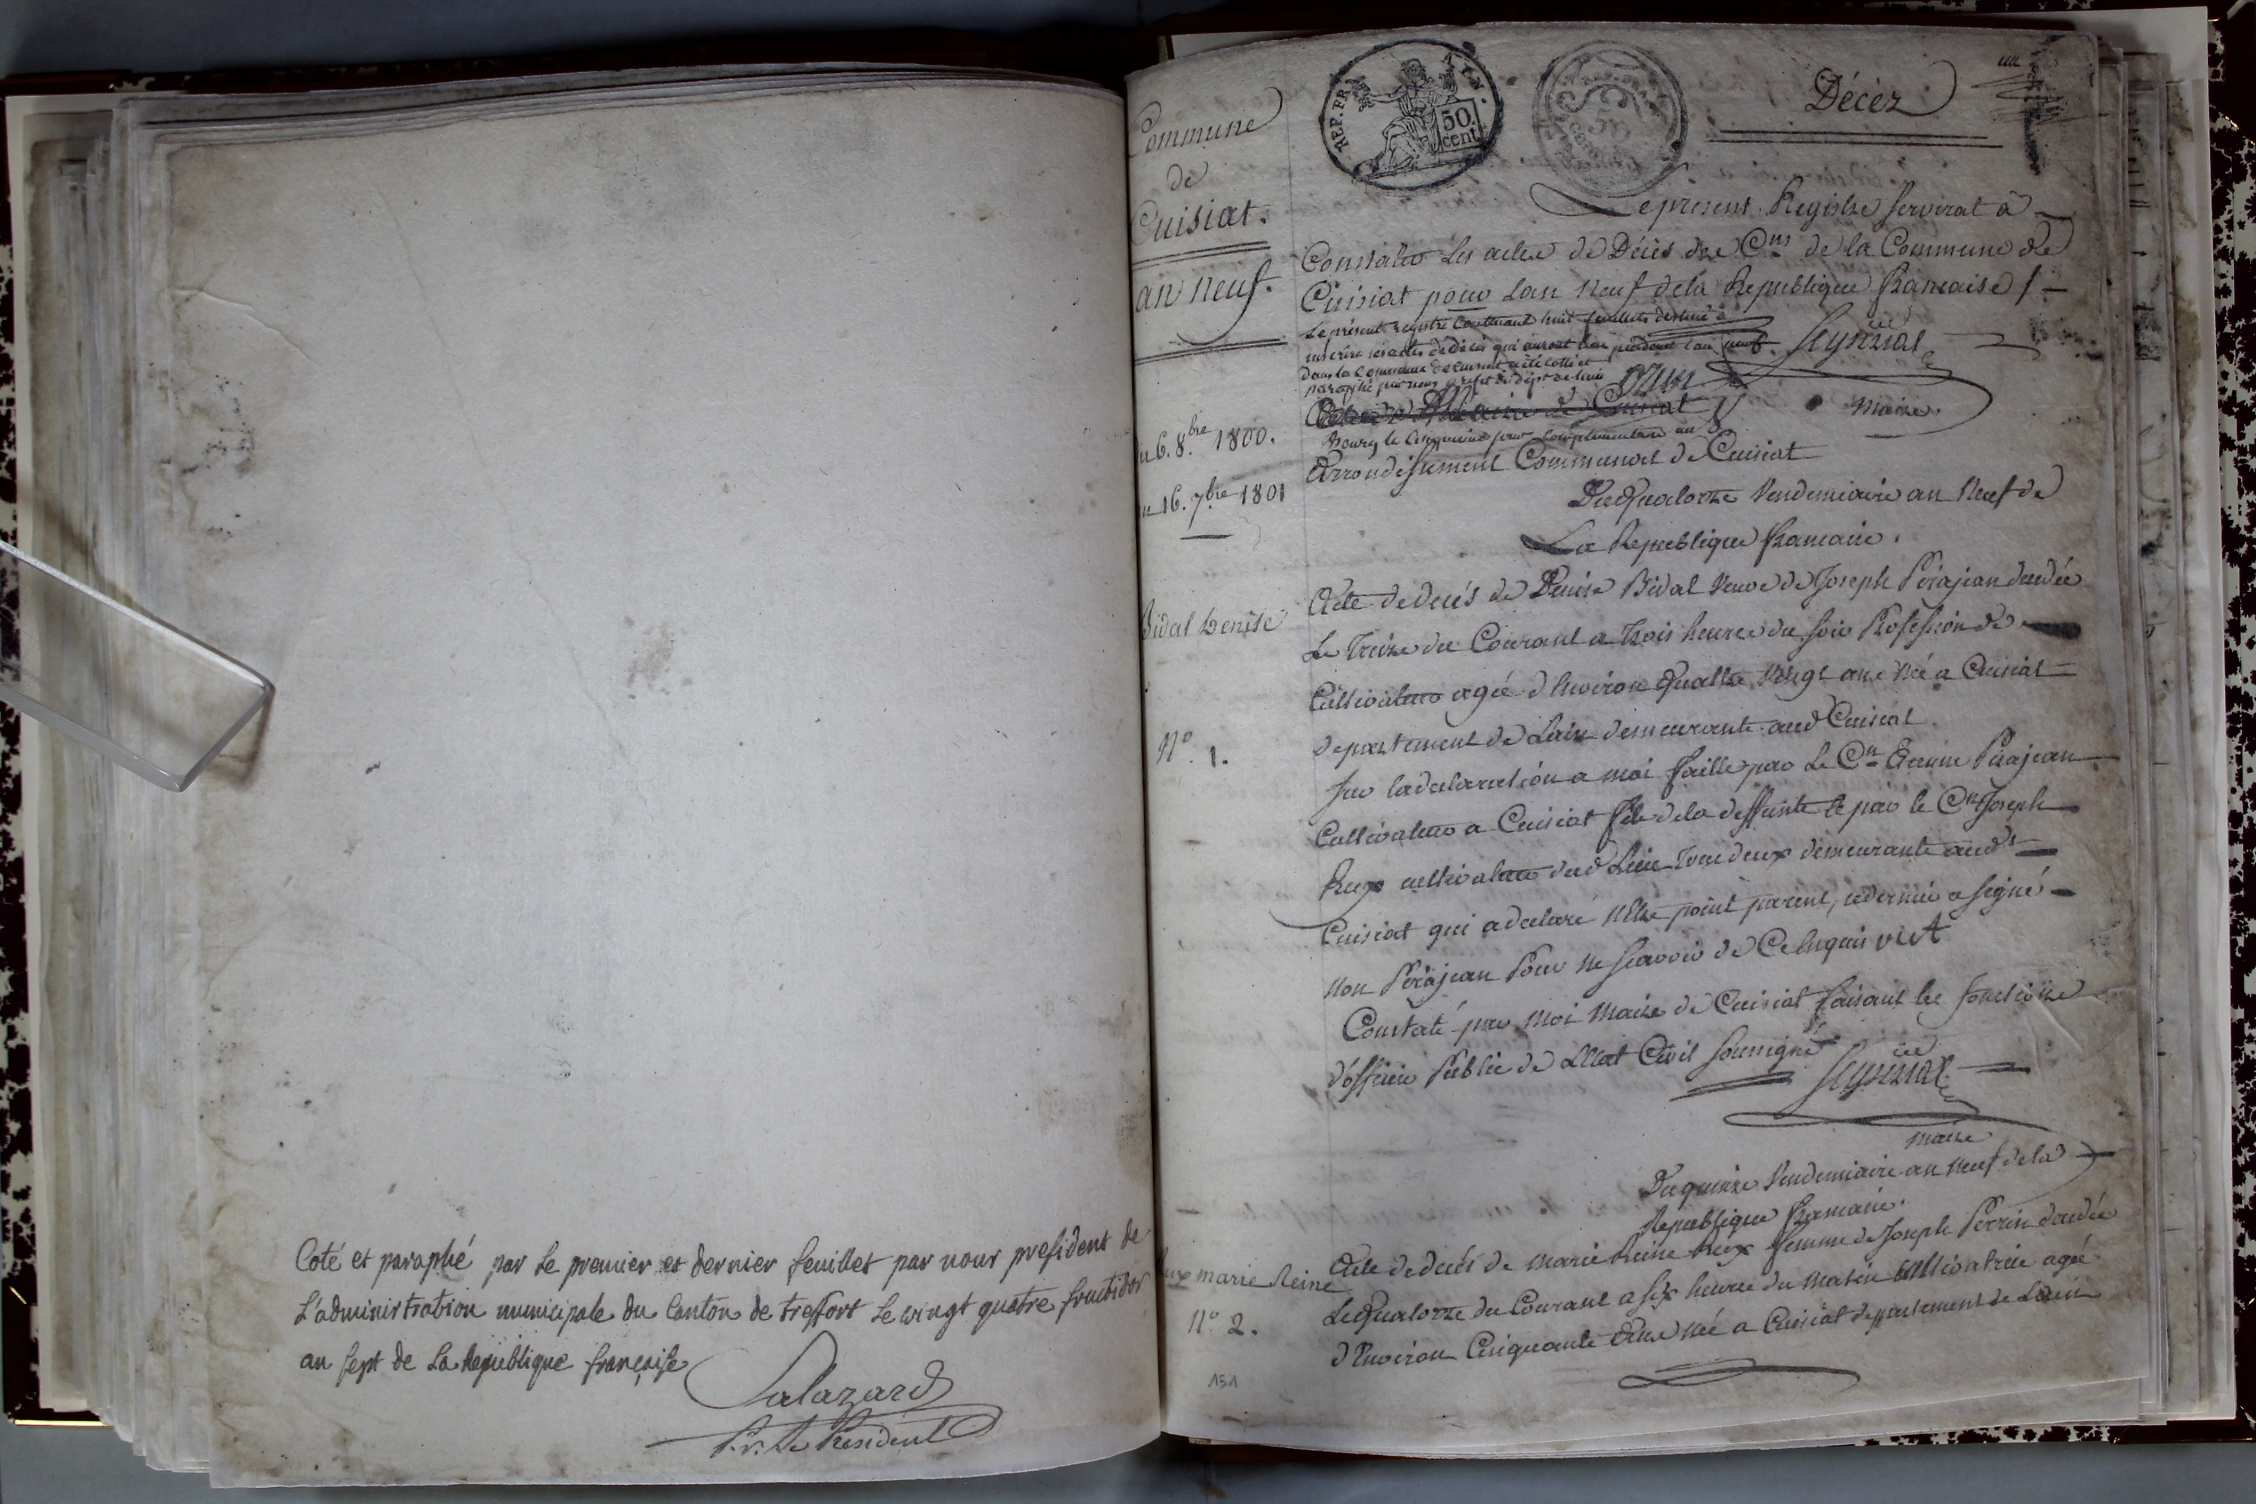 Coté et paraphé par Le premier et dernier feuillet par nous president de
L'administration municipale du Canton de treffort Le vingt quatre fructidor
an sept de La Republique françoise
Salazard
P.r. Le President
Commune
de
Cuisiat.
an neuf.
6. 8.bre 1800.
16. 7.bre 1801
REP. FRA. AIN.
50. cent.
Décéz
un
Le present Registre serverat a
Constater les actes de Décès des Cns de la Commune de
Cuisiat pour Lan Neuf de la Republique francaise /
Le présent registre Contenant huit feuillets destiné à
inscrire les actes de décès qui auront lieu pendant l'an neuf
dans la Commune de Cuisiat a été cotté et
paraphé par nous préfet du dépt. de l'ain
maire
Bourg le Cinquieme jour complémentaire an 8
Arrondissement Communal de Cuisiat
Du Quatorze Vendemiaire an Neuf de
La Republique francaise.
Bidal Denise
No. 1.
Acte de decés de Denise Bidal Veuve de Joseph Pérajean decedée
Le Treize du Courant a Trois heures du soir Profession de
Cultivateur agée d'Environ Quattre Vingt ans Née a Cuisiat
departement de Lain demeurante aud Cuisiat.
sur la declaration a moi faitte par Le Cn Pérajean
Cultivateur a Cuisiat fils de la deffunte et par le Cn Joseph
Rux cultivateur dud Lieu Tous deux demeurants audt
Cuisiat qui a declaré N'Etre point parent, ce dernier a signé
Non Pérajean Pour Ne Scavoir de Ce Enquis
Constaté par Moi Maire de Cuisiat faisant les fonctions
d'officier Public de L'Etat Civil Soussigné
maire
Du quinze Vendemiaire an Neuf de la
Republique francaise.
Rux marie Reine
No. 2.
Acte de decés de Marie Reine Rux femme de Joseph Perrin decedée
Le Quatorze du Courant a Six heures du Matin Cultivatrice agée
d'Environ Cinquante Ans née a Cuisiat departement de Lain
151